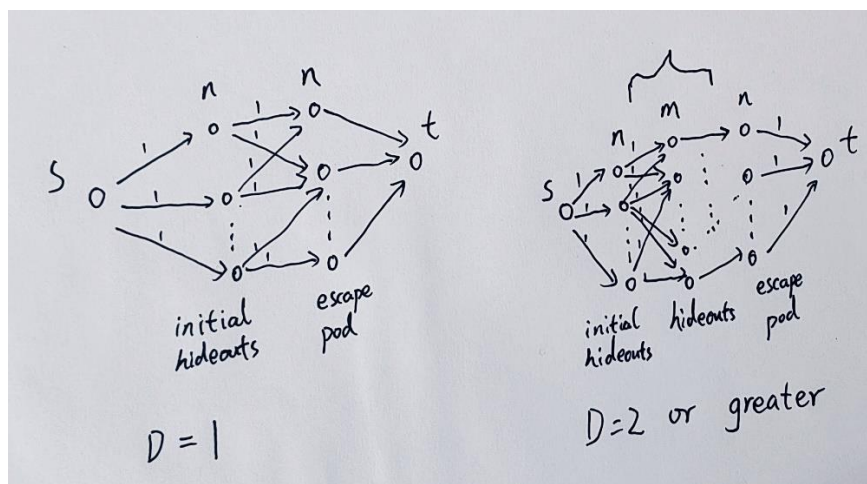 n
n
1
1
1
1
1
1
1
1
S
t
initial
hideouts
escape
pod
D = 1
n
m
n
1
1
1
1
1
1
1
1
1
S
t
initial
hideouts
hideouts
escape
pod
D=2 or greater